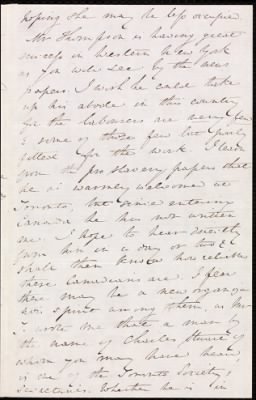 hoping she may be less occupied.
Mr Thompson is having great
success in Western New York
as you will see by the news
papers. I wish he could take
up his abode in this country
for the laborers are very few
& some of those few but poorly
fitted for the work. I learn
from the pro slavery papers that
he is warmly welcomed in
Toronto, but since entering
Canada he has not written
me. I hope to hear directly
from him in a day or two &
shall then know how reliable
these Canadians are. I fear
there may be a new organiza
tion spirit among them, as Mr
wrote me that a man by
the name of Charles Stuart of
whom you may have heard,
is one of the Toronto Society's
Secretaries. Whether he is